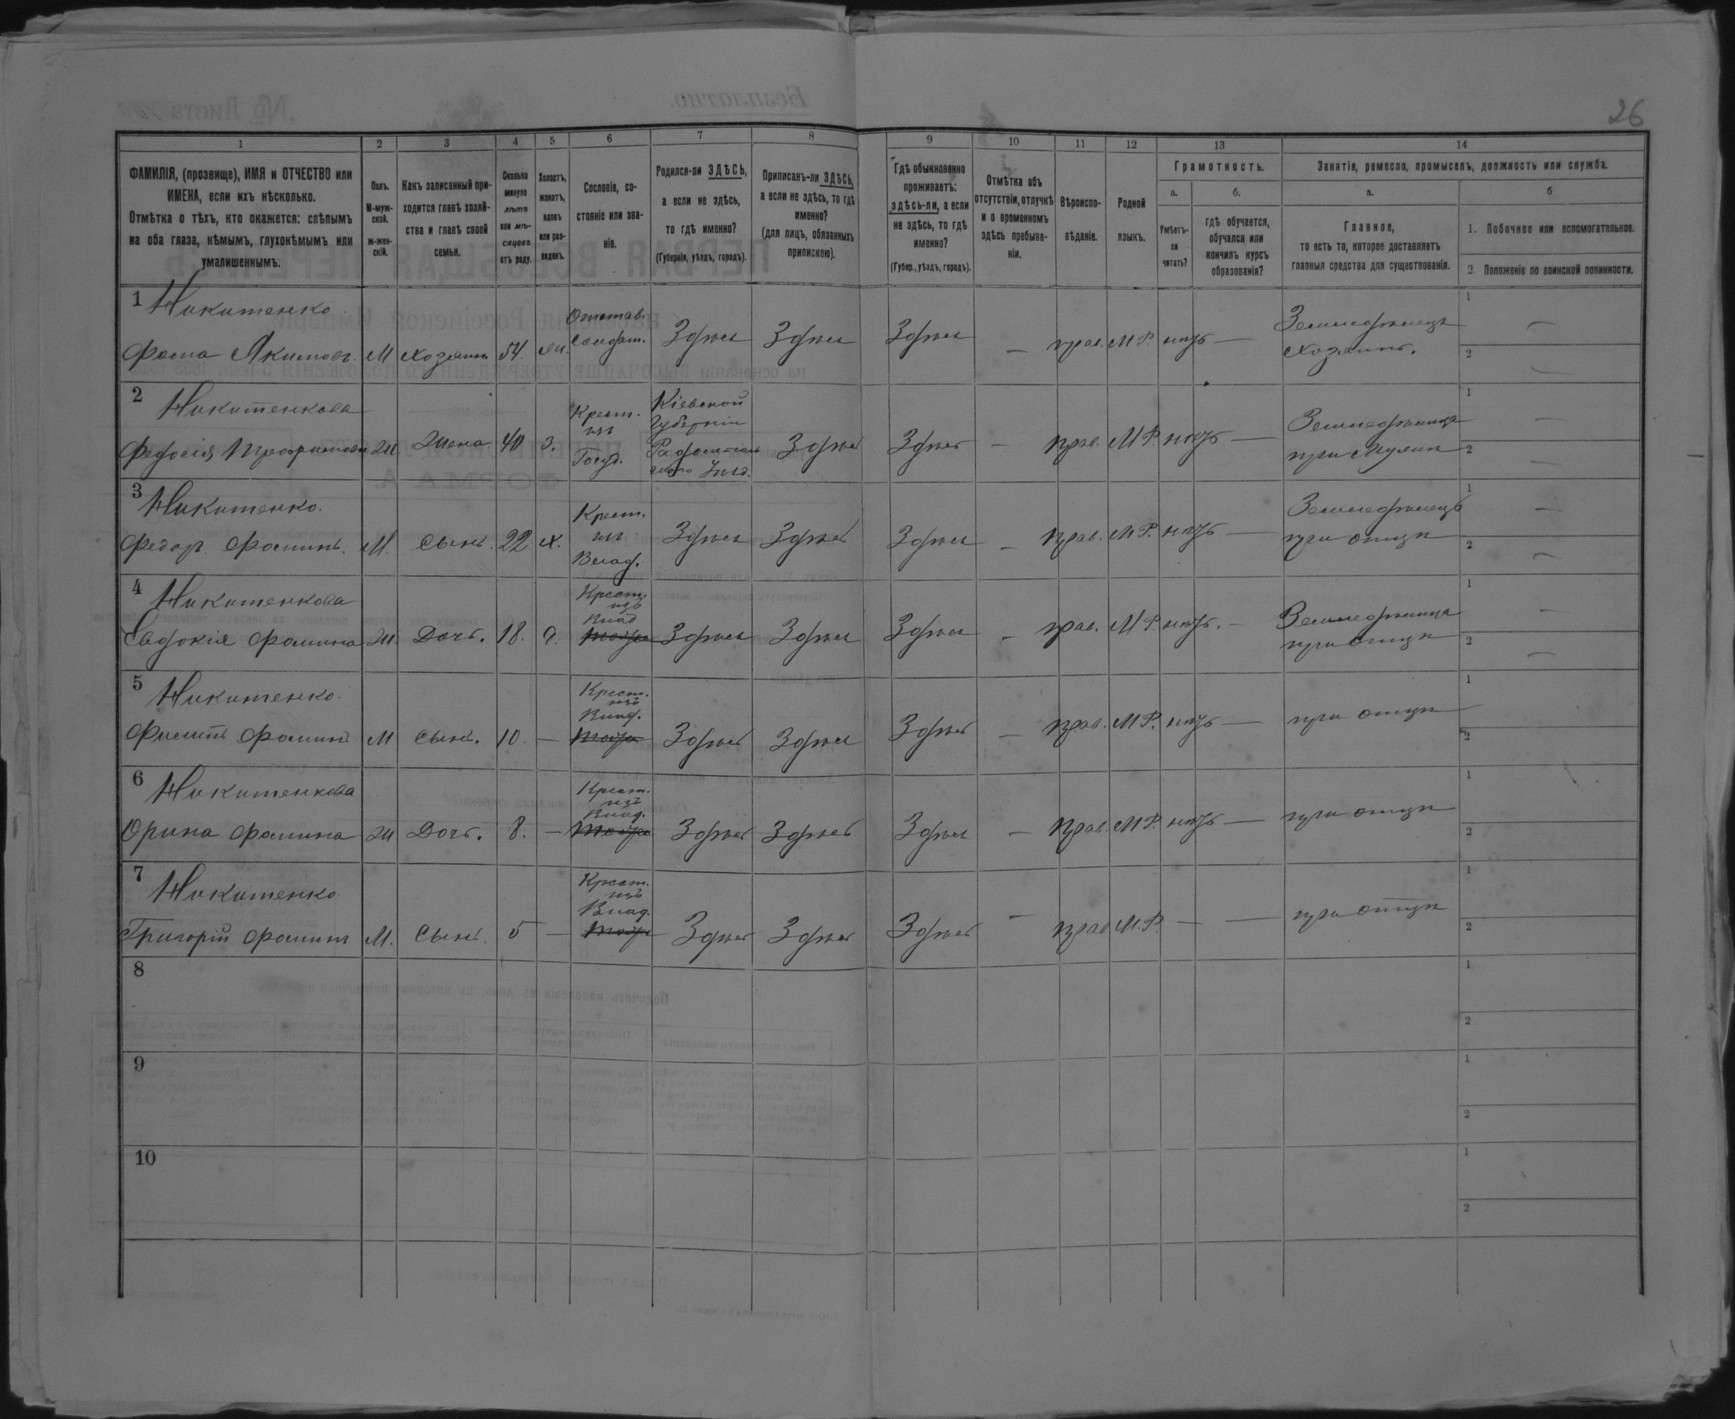 26
1 2 3 4 5 6 7 8 9 10 11 12 13 14
ФАМИЛІЯ, (прозвище), ИМЯ и ОТЧЕСТВО или
ИМЕНА, если ихъ нѣсколько.
Отмѣтка о тѣхъ, кто окажется: слѣпымъ
на оба глаза, нѣмымъ, глухонѣмымъ или
умалишеннымъ.
Полъ.
М-муж-
ской.
ж-жен-
скій.
Какъ записанный при-
ходится главѣ хозяй-
ства и главѣ своей
семьи.
Сколько
минуло
лѣтъ
или мѣ-
сяцевъ
отъ роду.
Холостъ,
женатъ,
вдовъ
или раз-
веденъ.
Сословіе, со-
стояніе или зва-
ніе.
Родился-ли ЗДѢСЬ,
а если не здѣсь,
то гдѣ именно?
(Губернія, уѣздъ, городъ).
Приписанъ-ли ЗДѢСЬ,
а если не здѣсь, то гдѣ
именно?
(для лицъ, обязанныхъ
припискою).
Гдѣ обыкновенно
проживаетъ:
здѣсь-ли, а если
не здѣсь, то гдѣ
именно?
(Губер., уѣздъ, городъ).
Отмѣтка объ
отсутствіи, отлучкѣ
и о временномъ
здѣсь пребыва-
ніи.
Вѣроиспо-
вѣданіе.
Родной
языкъ.
Грамотность.
а.
Умѣетъ-
ли
читать?
б.
гдѣ обучается,
обучался или
кончилъ курсъ
образованія?
Занятіе, ремесло, промыселъ, должность или служба.
а.
Главное,
то есть то, которое доставляетъ
главныя средства для существованія.
б
1. Побочное или вспомогательное.
2 Положеніе по воинской повинности.
1 Никитенко
Отстав.
Земледѣлецъ 1 —
Фома Якимовъ. М хозяинъ 54. жн. Солдат. Здѣсь Здѣсь Здѣсь — прав. М.Р. нѣтъ — хозяинъ. 2 —
2 Никитенкова
Крест.
Кіевской
Губерніи
Земледѣлица 1 —
Федосія Трофимова ж Жена 40 з. изъ Госуд. Радомысльскаго Уѣзд. Здѣсь Здѣсь — прав. М.Р. нѣтъ — при мужѣ 2 —
3 Никитенко.
Крест.
Земледѣлецъ 1 —
Федоръ Фоминъ. М. сынъ. 22 х. изъ Влад. Здѣсь Здѣсь Здѣсь — прав. М.Р. нѣтъ — при отцѣ 2 —
4 Никитенкова
Крест.
изъ
Влад
Земледѣлица 1 —
Евдокія Фомина ж. Дочь. 18. д. Здѣсь Здѣсь Здѣсь — прав. М.Р. нѣтъ. — при отцѣ 2 —
5 Никитенко.
Крест.
изъ
Влад.
1
Филипъ Фоминъ М сынъ. 10. — Здѣсь Здѣсь Здѣсь — прав. М.Р. нѣтъ — при отцѣ 2
6 Никитенкова
Крест.
изъ
Влад.
1
Орина Фомина ж Дочь. 8. — Здѣсь Здѣсь Здѣсь — прав. М.Р. нѣтъ — при отцѣ 2
7 Никитенко
Крест.
изъ
Влад.
1
Григорій Фоминъ М. Сынъ. 5 — Здѣсь Здѣсь Здѣсь — прав М.Р. — — при отцѣ 2
8 1
2
9 1
2
10 1
2